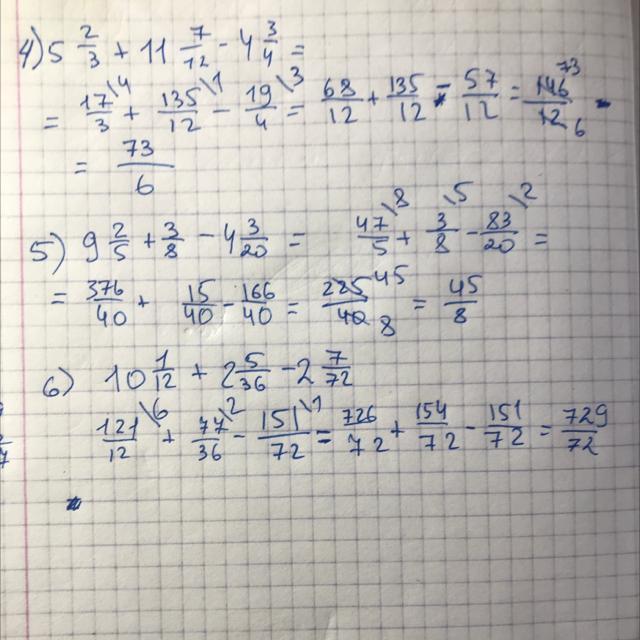 4) 5 2/3 + 11 7/12 - 4 3/4 =
= 17/3 \4 + 135/12 \1 - 19/4 \3 = 68/12 + 135/12 - 57/12 = 146/12 73 6
= 73/6
5) 9 2/5 + 3/8 - 4 3/20 = 47/5 \8 + 3/8 \5 - 83/20 \2 =
= 376/40 + 15/40 - 166/40 = 225/40 45 8 = 45/8
6) 10 1/12 + 2 5/36 - 2 7/72
121/12 \6 + 77/36 \2 - 151/72 \1 = 726/72 + 154/72 - 151/72 = 729/72